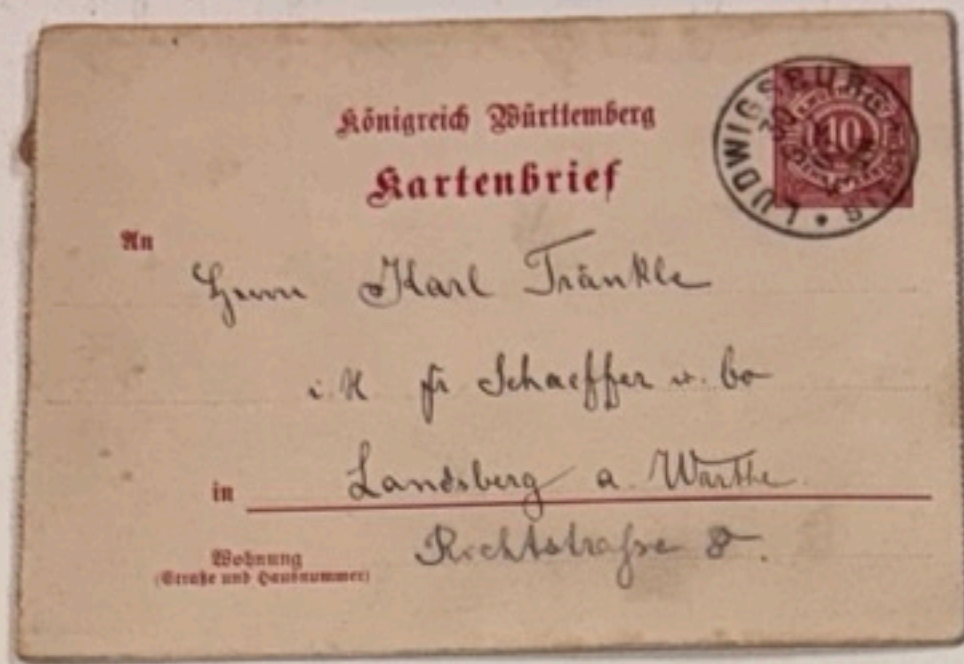 Königreich Württemberg
Kartenbrief
LUDWIGSBURG
10
An
Herrn Karl Tränkle
i. H Fr Schaeffer u. Co
in Landsberg a. Warthe
Richtstraße 8.
Wohnung
(Straße und Hausnummer)